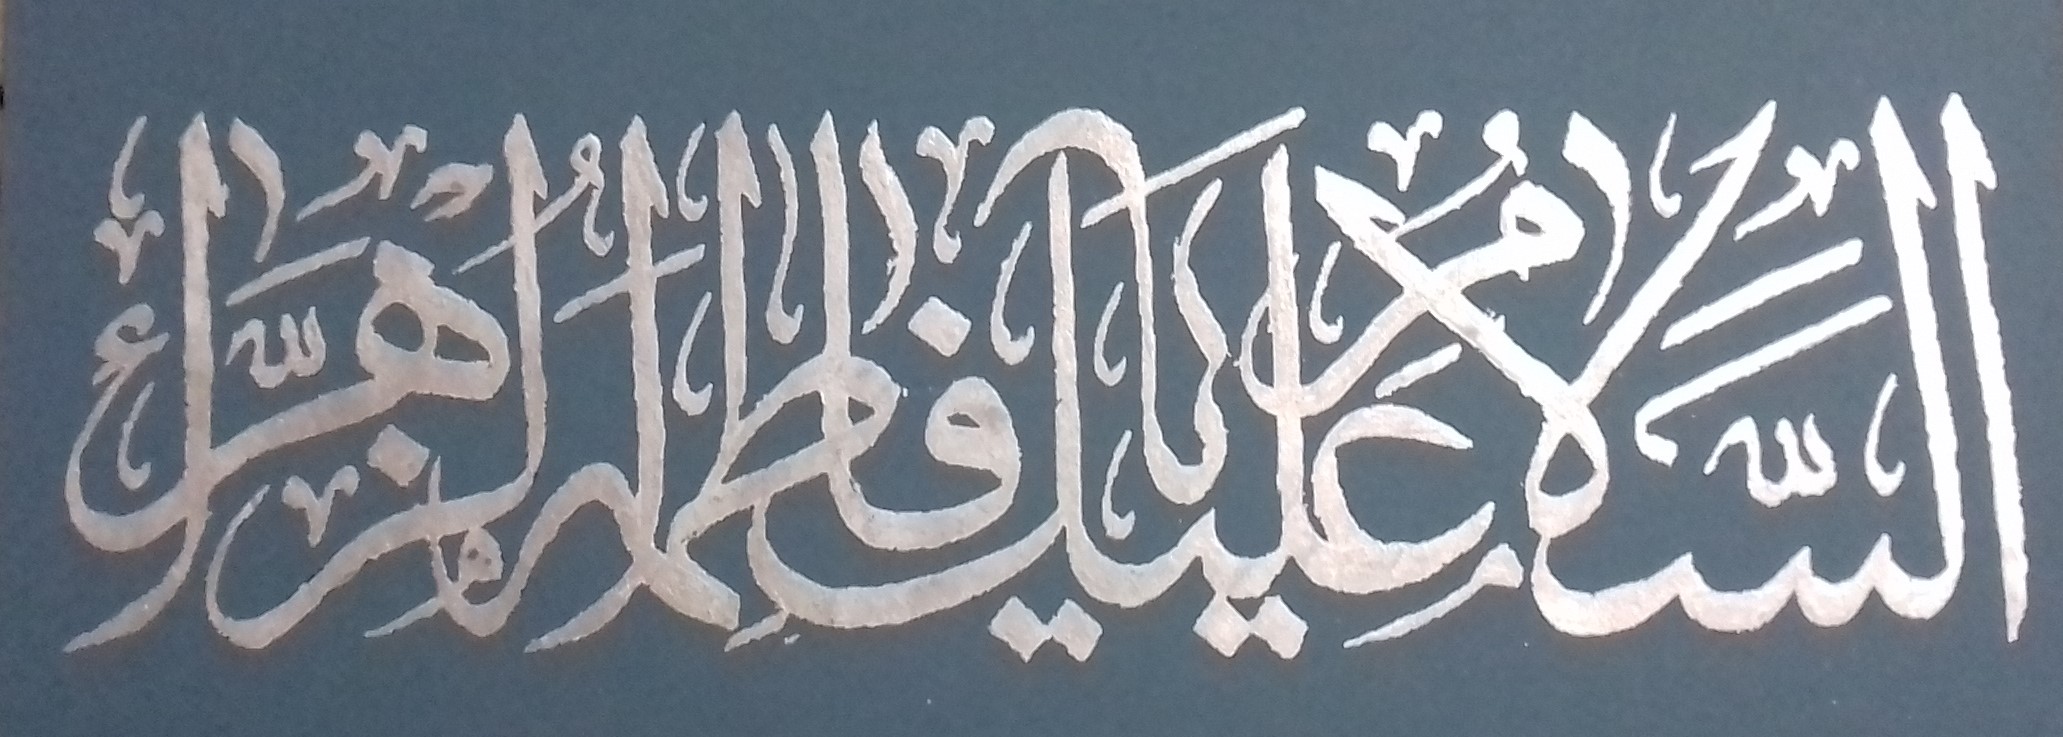 السَّلَامُ عَلَيْكِ يَا فَاطِمَةُ الزَّهْرَاءُ